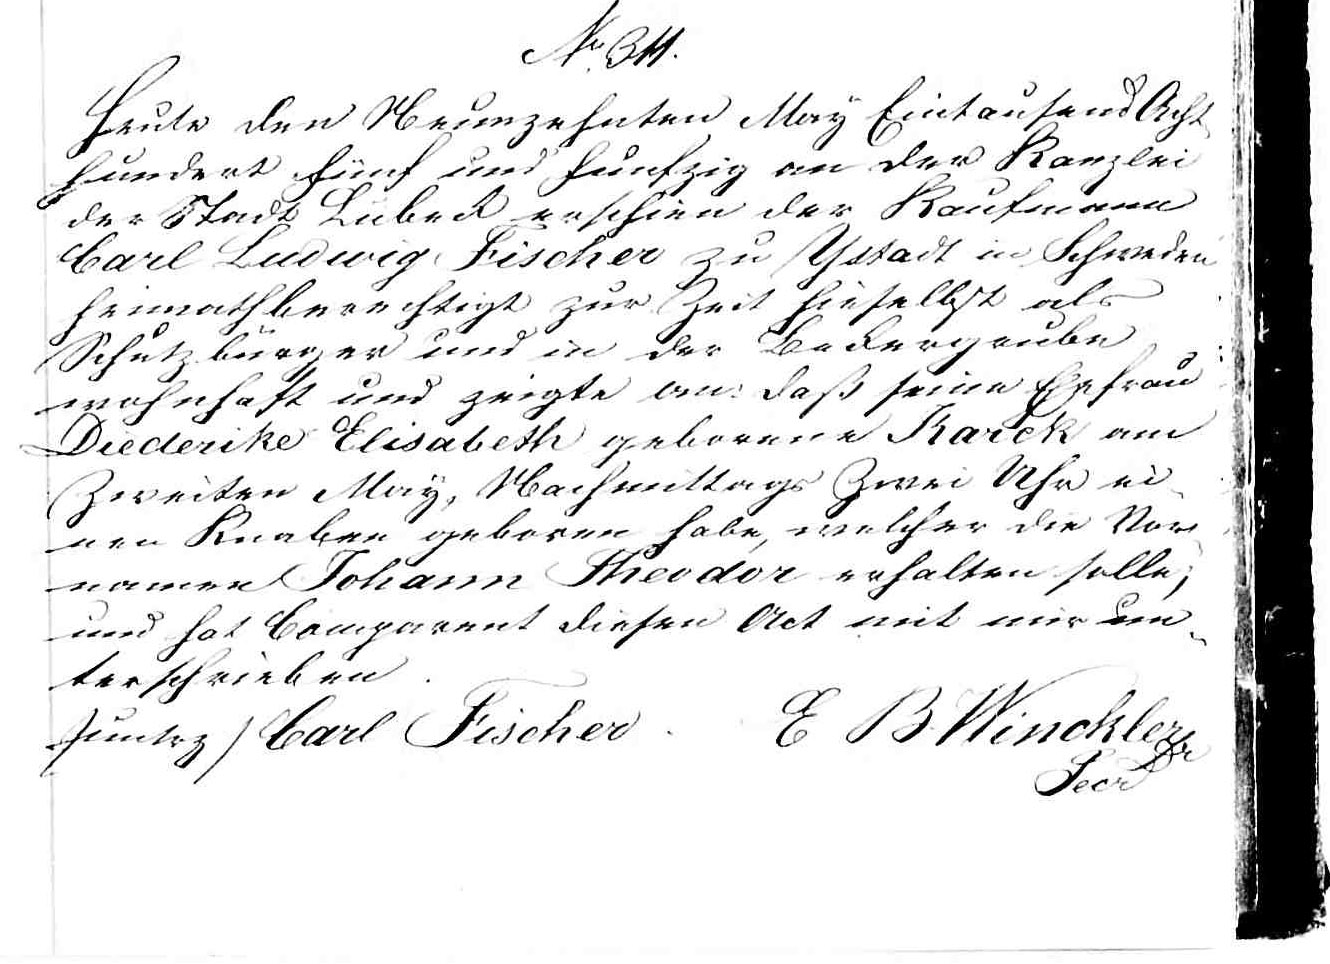 No 311.
Heute den Neunzehnten May Eintausend Acht
hundert fünf und funfzig an der Kanzlei
der Stadt Lübeck erschien der Kaufmann
Carl Ludwig Fischer zu Ystadt in Schweden
heimathberechtigt zur Zeit hieselbst als
Schutzbürger und in der Beckergrube
wohnhaft und zeigte an: daß seine Ehefrau
Diederike Elisabeth geborene Karck am
Zweiten May, Nachmittags Zwei Uhr ei-
nen Knaben geboren habe, welcher die Vor
namen Johann Theodor erhalten solle;
und hat Comparent diesen Act mit mir un-
terschrieben.
(unterz) Carl Fischer. E B Winckler Dr
Secr